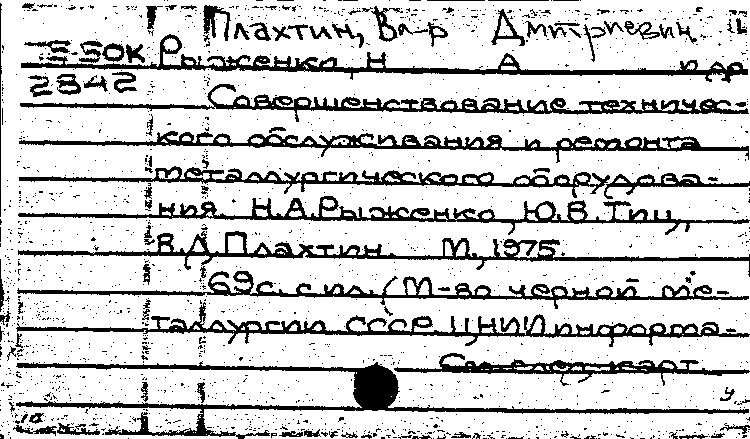 Плахтин, Вл-р Дмитриевич
Е-50К Рыженко, Н А и др
2842
Совершенствование техничес-
кого обслуживания и ремонта
металлургического оборудова-
ния. Н.А.Рыженко, Ю.В.Тиц,
В.Д.Плахтин. М., 1975.
69с. с ил. (М-во черной ме-
таллургии СССР ЦНИИинформа-
См. след. карт.
у